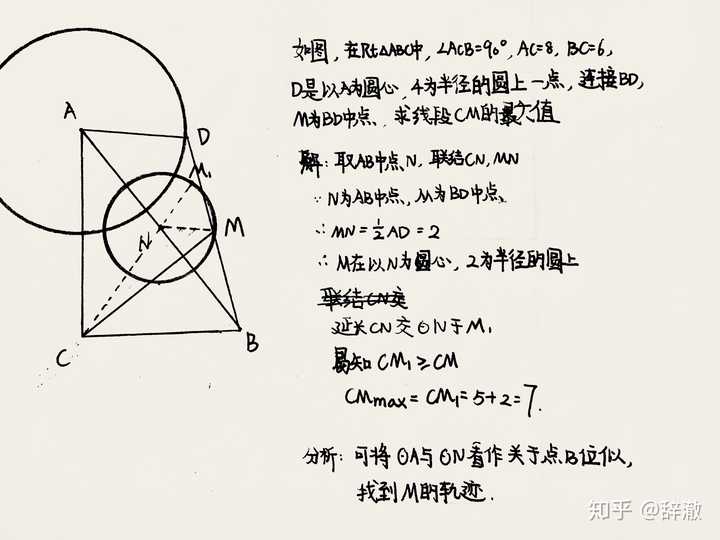 如图，在Rt△ABC中，∠ACB=90°，AC=8，BC=6，
D是以A为圆心，4为半径的圆上一点，连接BD，
M为BD中点、求线段CM的最大值
解：取AB中点N，联结CN，MN
∵N为AB中点、，M为BD中点、
∴MN=½AD=2
∴M在以N为圆心，2为半径的圆上
联结CN交
延长CN交⊙N于M₁
易知CM₁≥CM
CMmax=CM₁=5+2=7.
分析：可将⊙A与⊙N看作关于点B位似，
找到M的轨迹.
A
D
M₁
N
M
C
B
知乎 @辞澈